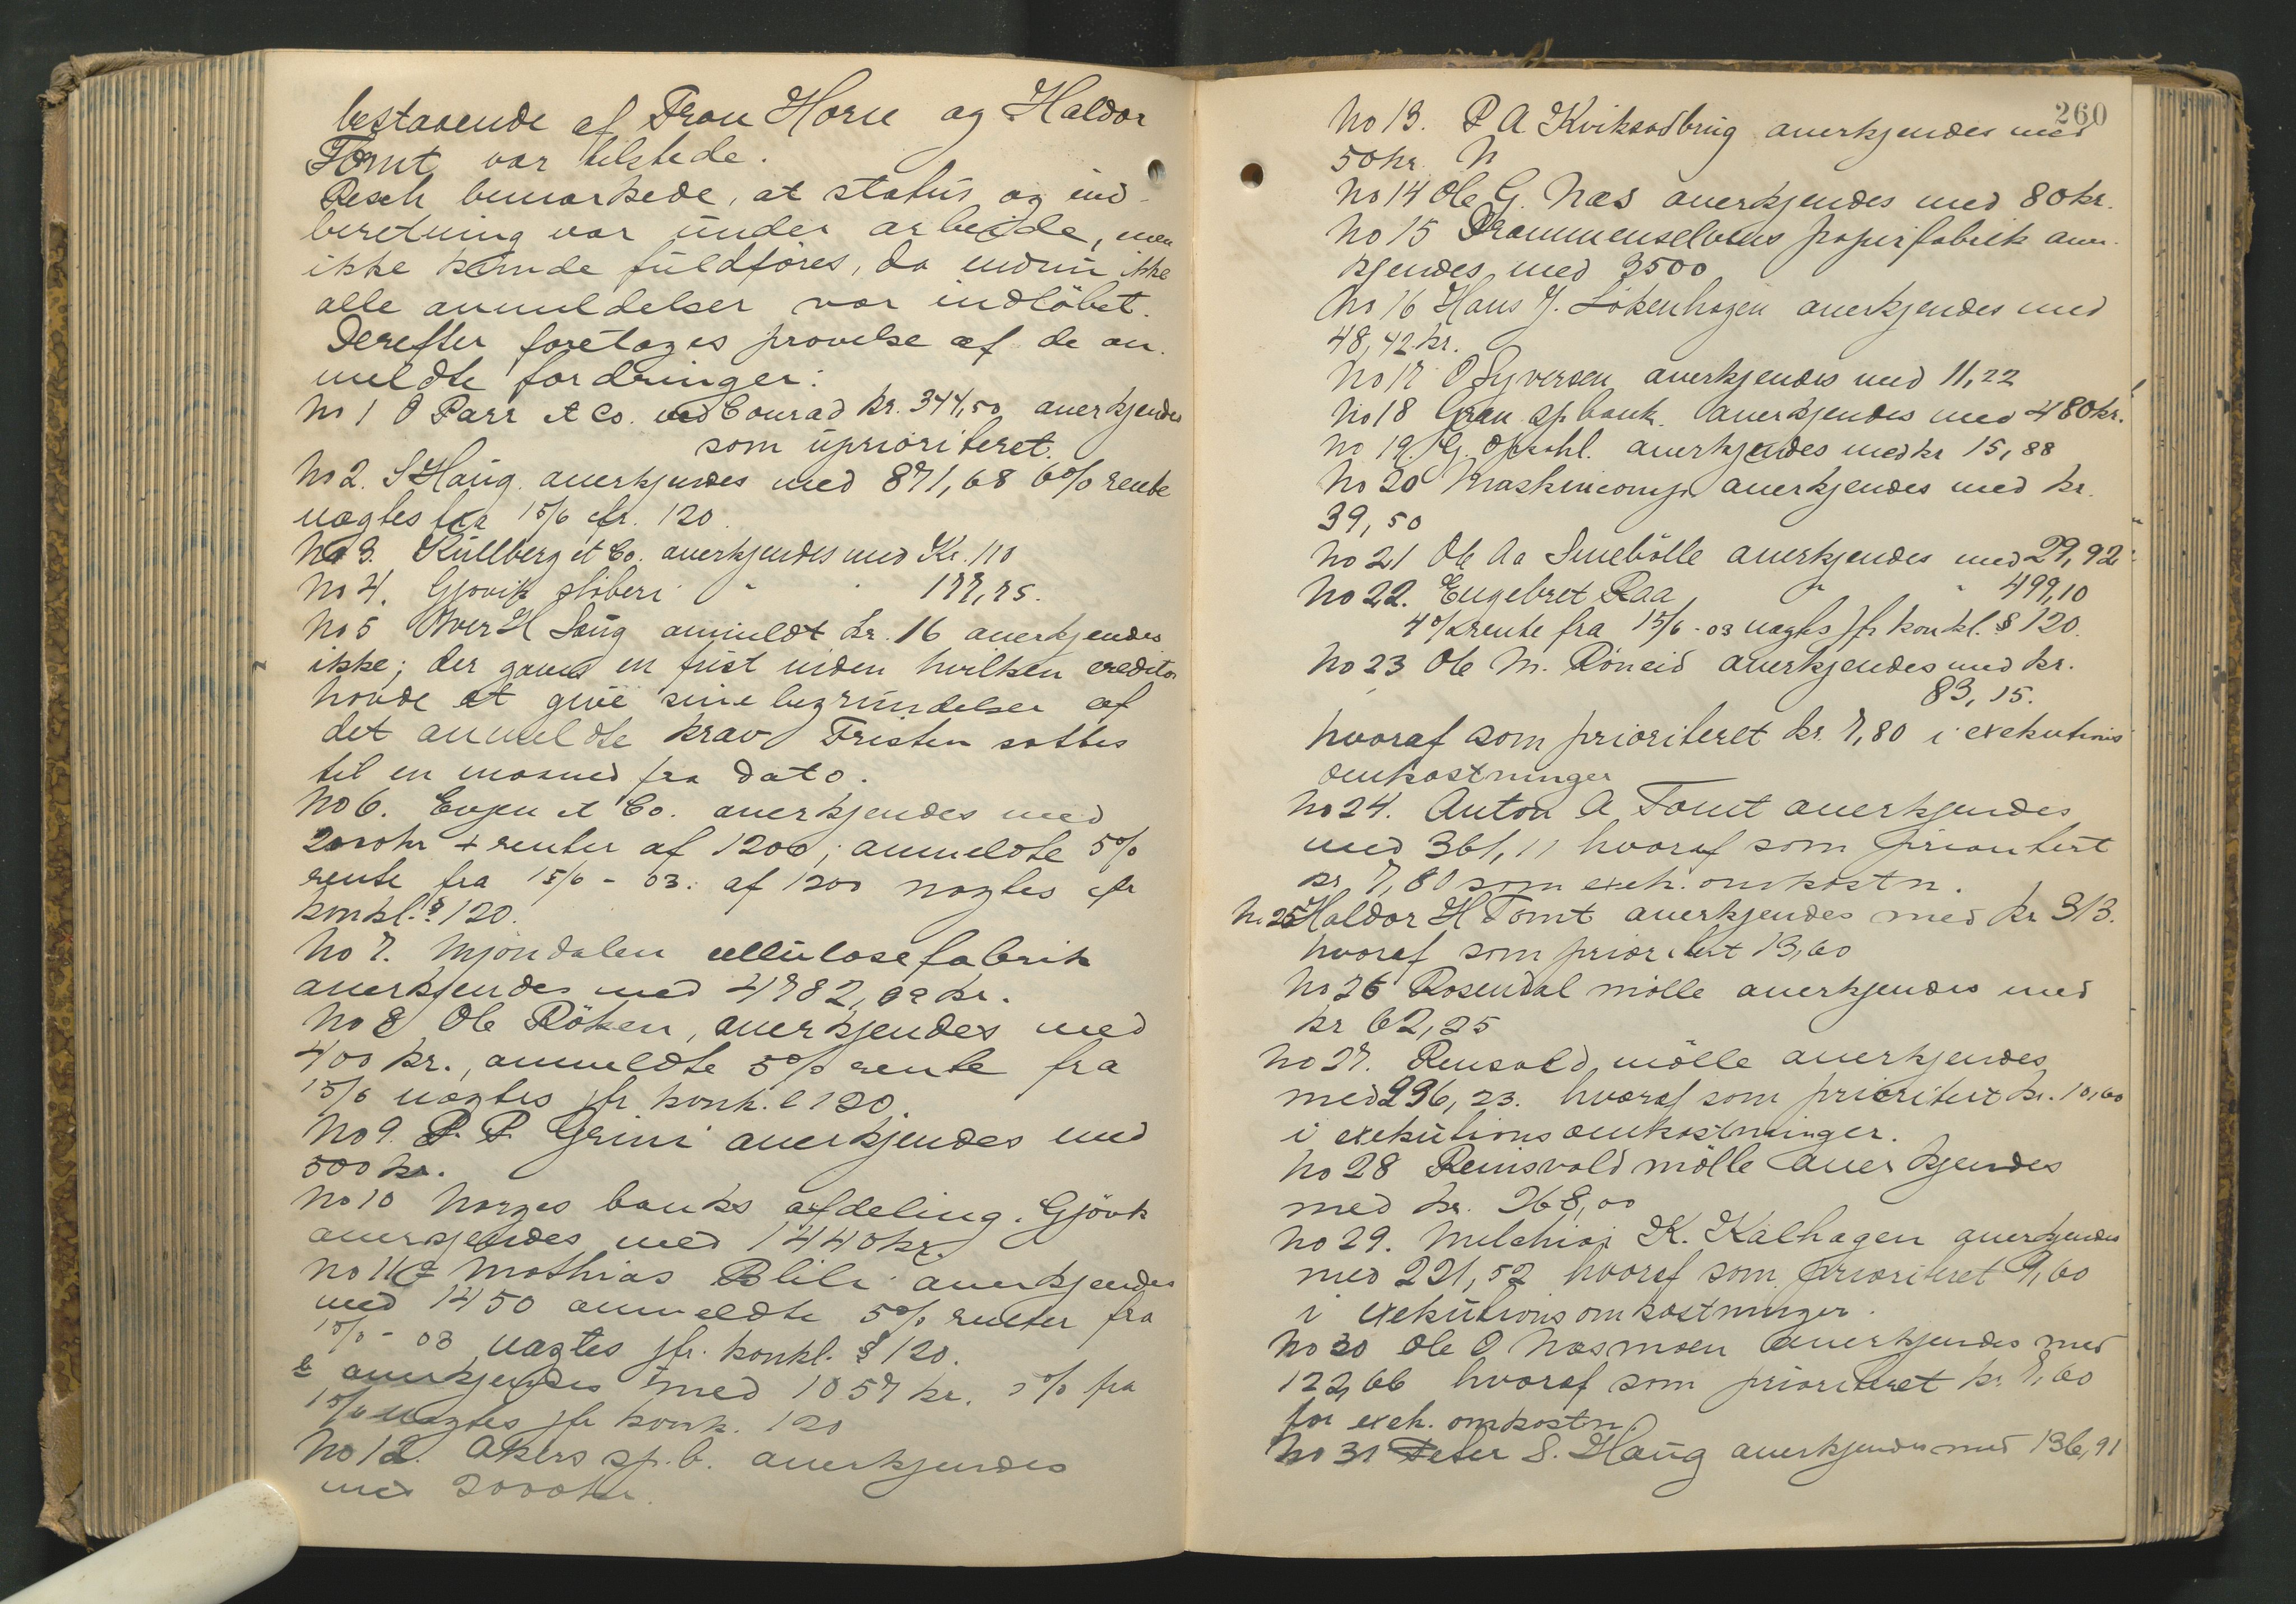 bestaaende af Fron Horn og Haldor
Tomt var tilstede.
Resch bemærkede, at status og ind-
beretning var under arbeide, men
ikke kunde fuldføres, da endnu ikke
alle anmeldelser var indløbet.
Derefter foretages prøvelse af de an-
meldte fordringer:
No 1 O Parr et Co. ved Conrad kr. 344,50 anerkjendes
som uprioriteret.
No 2. S Haug. anerkjendes med 871,68 6% rente
nægtes fra 15/6 cfr. 120.
No 3. Küllberg et Co. anerkjendes med Kr. 110
No 4. Gjøvik sliberi " " 177,75.
No 5 Iver H Haug anmeldt kr. 16 anerkjendes
ikke; der gaves en frist inden hvilken creditor
havde at give sine begrundelser af
det anmeldte krav Fristen sattes
til en maaned fra dato.
No 6. Evjen et Co. anerkjendes med
2000kr + renter af 1200; anmeldte 5%
rente fra 15/6 - 03. af 1200 nægtes cfr
konkl. § 120.
No 7. Mjøndalen cellulosefabrik
anerkjendes med 4782,02 kr.
No 8 Ole Röken, anerkjendes med
400 kr., anmeldte 5% rente fra
15/6 nægtes jfr konk. l 120.
No 9. P. P. Grini anerkjendes med
500 kr.
No 10 Norges banks afdeling. Gjövik
anerkjendes med 1440kr.
No 11 a Mathias Blili anerkjendes
med 1450 anmeldte 5% renter fra
15/6 - 03 nægtes jfr. konkl. § 120.
b anerkjendes med 1057 kr. 5% fra
15/6 nægtes jfr konk. 120
No 12. Akers sp.b. anerkjendes
med 2000kr.
260
No 13. P A Kviksødbrug anerkjendes med
50kr. N
No 14 Ole G. Næs anerkjendes med 80kr.
No 15 Drammenselvens papirfabrik aner-
kjendes med 3500
No 16 Hans J. Løkenhagen anerkjendes med
48,42 kr.
No 17 O Syversen anerkjendes med 11,22
No 18 Gran sp.bank. anerkjendes med 480kr.
No 19. G. Opsahl. anerkjendes med kr 15,88
No 20 Maskincomp. anerkjendes med kr.
39,50
No 21 Ole Aa Smebölle anerkjendes med 29,92
No 22. Engebret Raa " " 499,10
4% rente fra 15/6 - 03 nægtes jfr konkl. § 120.
No 23 Ole M. Röneid anerkjendes med kr.
83,15.
hvoraf som prioriteret kr. 7,80 i exekutions
omkostninger
No 24. Anton A Tomt anerkjendes
med 361,11 hvoraf som prioritert
kr. 7,80 som exek. omkostn.
No 25 Haldor H Tomt anerkjendes med kr 313.
hvoraf som prioritert 13,60
No 26 Rosendal mölle anerkjendes med
kr 62,25
No 27. Rensvold mölle anerkjendes
med 296,23. hvoraf som prioritert kr. 10,60
i exekutionsomkostninger.
No 28 Reinsvold mölle anerkjendes
med kr. 268,00
No 29. Melchior K. Kalhagen anerkjendes
med 221,52 hvoraf som prioriteret 9,60
i exekutionsomkostninger.
No 30 Ole O Næsmoen anerkjendes med
122,66 hvoraf som prioriteret kr. 7,60
for exek. omkostn.
No 31 Peter S. Haug anerkjendes med 136,91